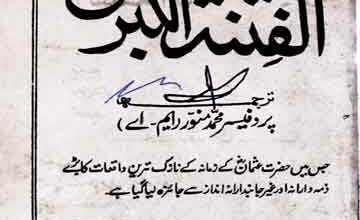 الفتنۃ الکبریٰ
ترجمہ
پروفیسر محمد منور (ایم-اے)
جس میں حضرت عثمانؓ کے زمانہ کے نازک ترین واقعات کا بڑے
ذمہ دارانہ اور غیر جانبدارانہ انداز سے جائزہ لیا گیا ہے۔